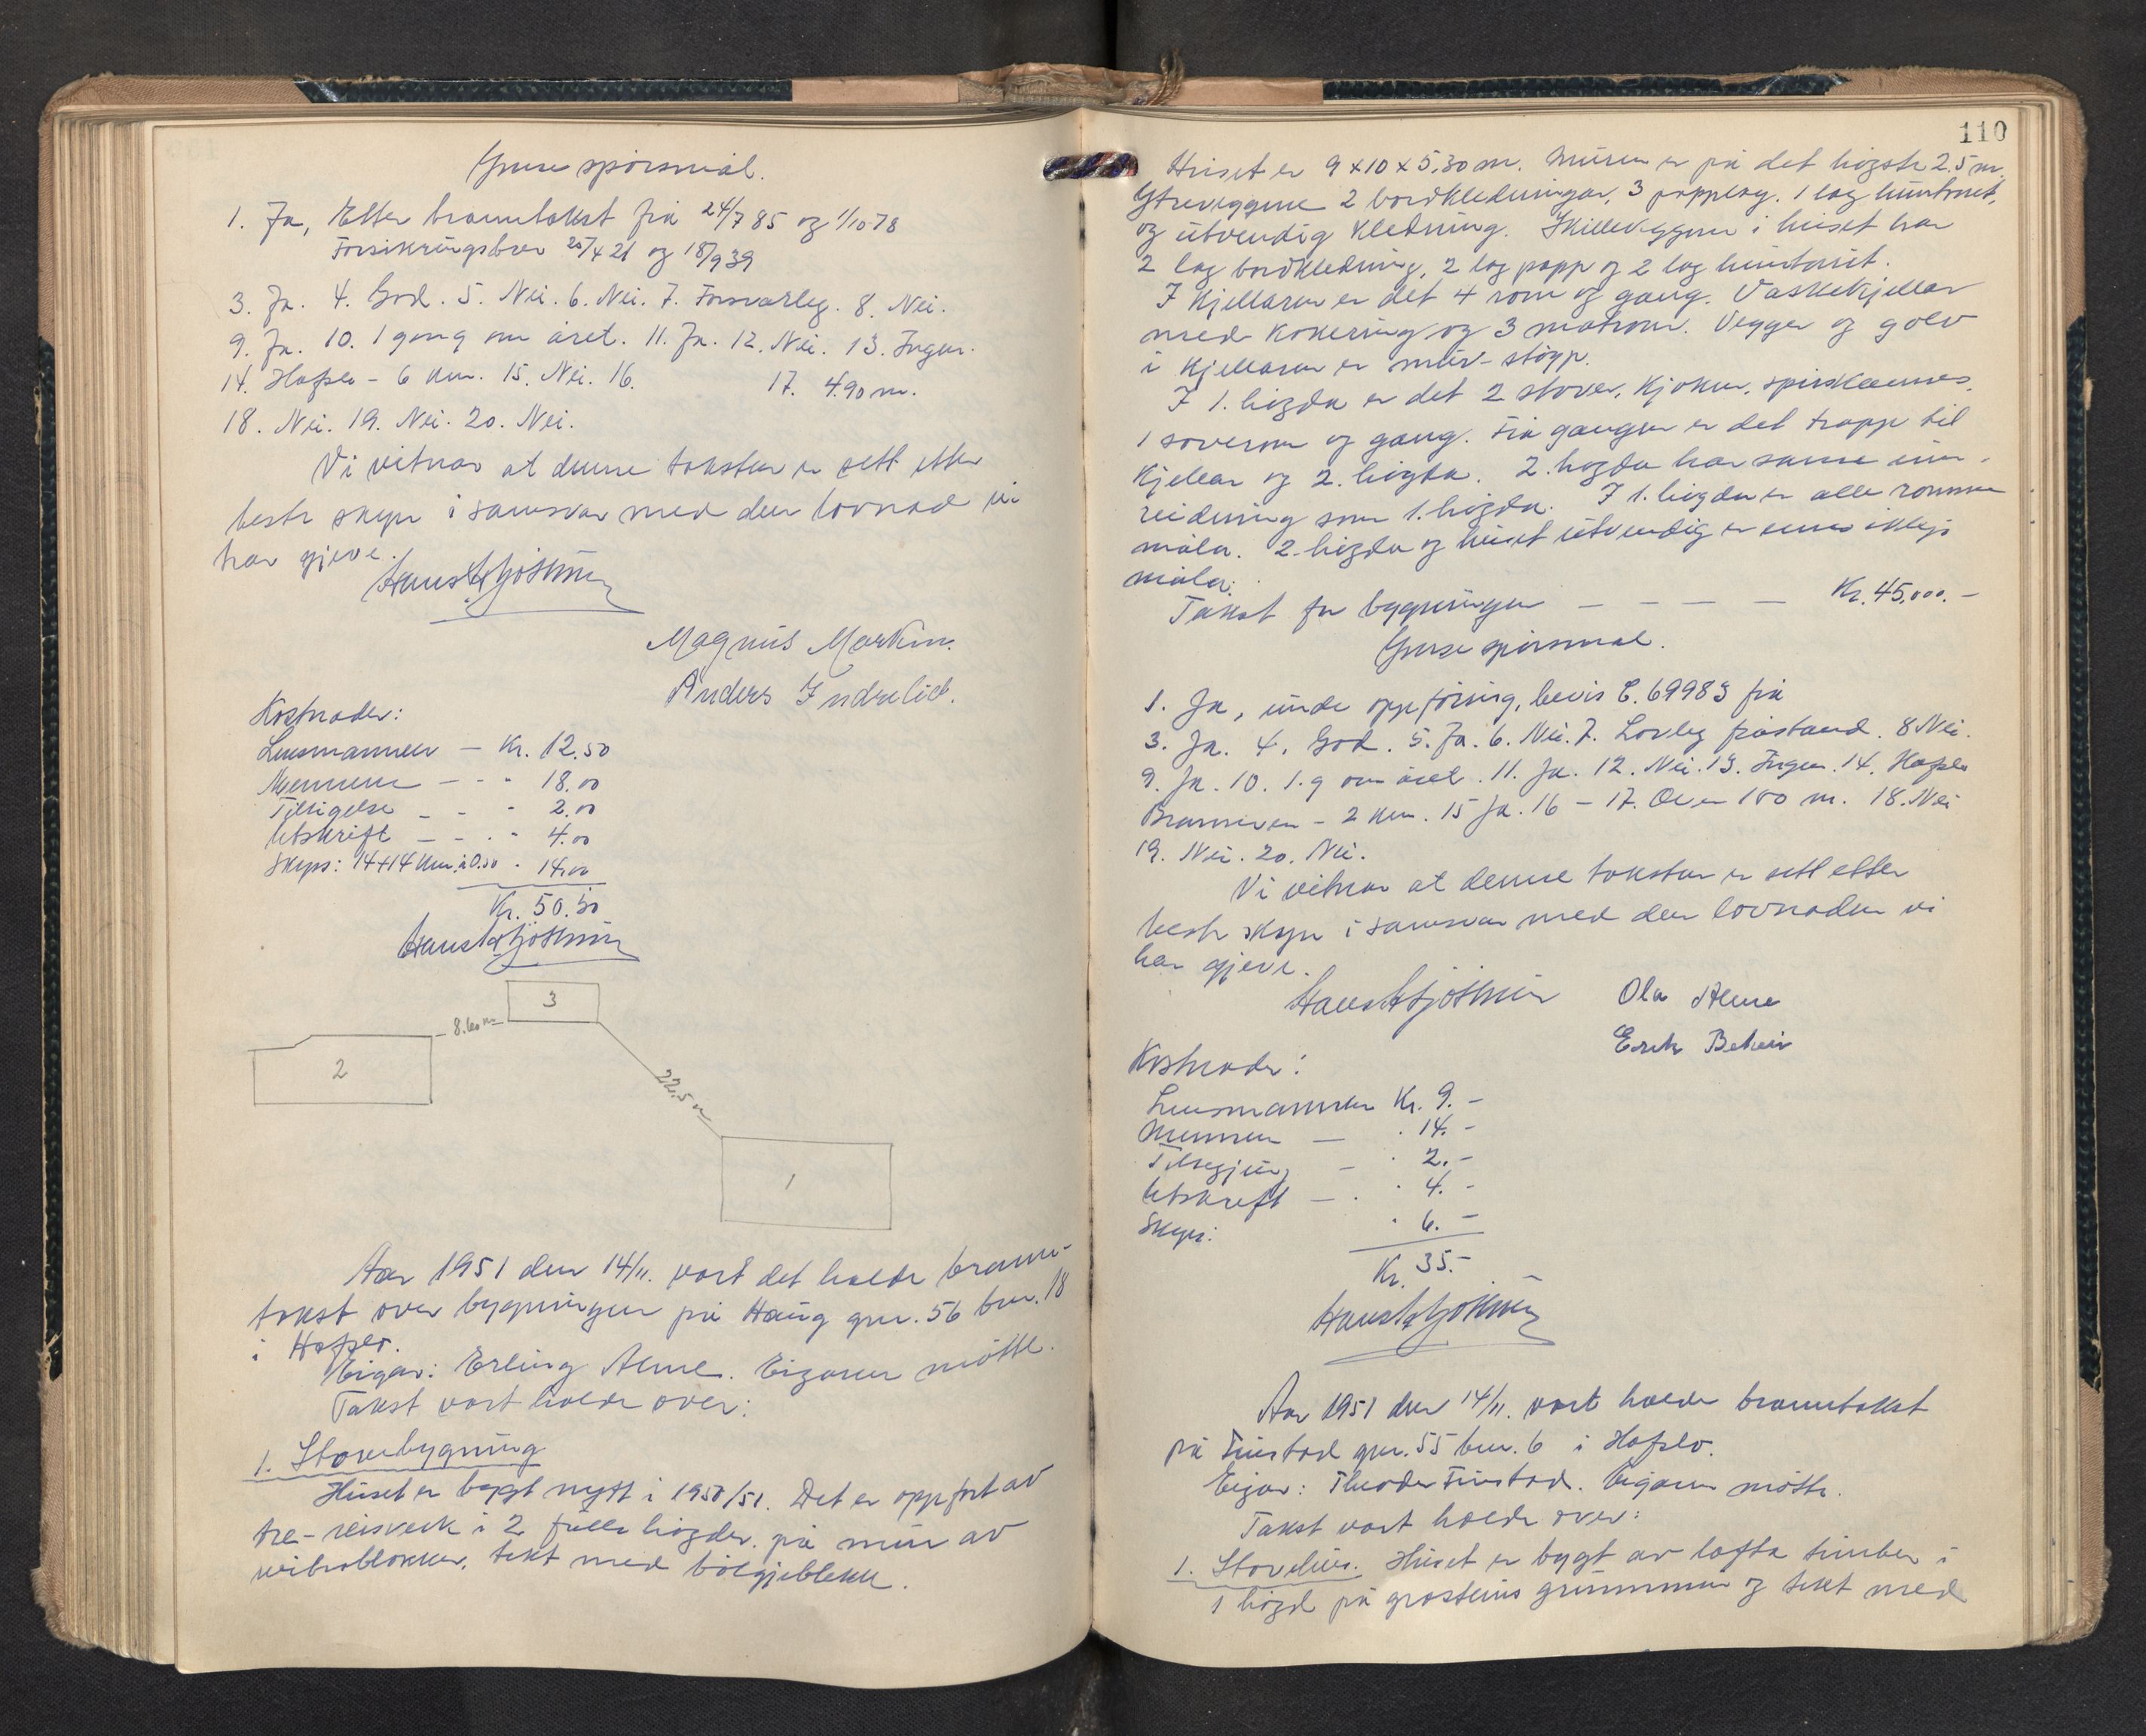 Ymse spörsmål.
1. Ja, Etter branntakst frå 24/7 85 og 1/10 78
Forsikringsbrev 20/4 21 og 18/9 39
3. Ja. 4. God. 5. Nei. 6. Nei. 7. Forsvarleg. 8. Nei.
9. Ja. 10. 1 gong om året. 11. Ja. 12. Nei. 13. Ingen.
14. Hafslo - 6 km. 15. Nei. 16. 17. 4.90 m.
18. Nei. 19. Nei. 20. Nei.
Vi vitnar at denne taksten er sett etter
beste skyn i samsvar med den lovnad vi
har gjeve.
Magnus Morken.
Anders Indrelid.
Kostnader:
Lensmannen - Kr. 12.50
Mennene - - " 18.00
Tilsigelse - - " 2.00
Utskrift - - . " 4.00
Skyss: 14+14 km. à 0.50 " 14.00
Kr. 50.50
3
8.60 m
2
22.5 m
1
Aar 1951 den 14/11. vart det halde brann-
takst over bygningen på Haug gnr. 56 bnr. 18
i Hafslo.
Eigar: Erling Alme. Eigaren møtte.
Takst vart halde over:
1. Stovebygning
Huset er bygt nytt i 1950/51. Det er oppført av
tre-reisverk i 2 fulle høgder på mur av
vibroblokker, tekt med bølgjeblekk.
110
Huset er 9 x 10 x 5.30 m. Muren er på det högste 2.5 m.
Ytreveggene 2 bordkledningar, 3 papplag. 1 lag huntonit,
og utvendig kledning. Skilleveggene i huset har
2 lag bordkledning, 2 lag papp og 2 lag huntonit.
I kjellaren er det 4 rom og gang. Vaskekjellar
med kokering og 3 matrom. Vegger og golv
i kjellaren er mur-støyp.
I 1. högda er det 2 stover, kjøken, spiskammers,
1 soverom og gang. Frå gangen er det trapp til
kjellar og 2. högda. 2. högda har same inn-
reidning som 1. högda. I 1. högda er alle romma
måla. 2. högda og huset utvendig er enno ikkje
måla.
Takst for bygningen - - - - Kr. 45,000.-
Ymse spörsmål.
1. Ja, under oppföring, bevis E. 69983 frå
3. Ja. 4. God. 5. Ja. 6. Nei. 7. Lovleg fråstand. 8 Nei.
9. Ja. 10. 1. g om året. 11. Ja. 12. Nei. 13. Ingen. 14. Hafslo
Brannven - 2 km. 15 Ja. 16 - 17. Over 100 m. 18. Nei
19. Nei. 20. Nei.
Vi vitnar at denne taksten er sett etter
beste skyn i samsvar med den lovnaden vi
har gjeve.
Ola Alme
Kostnader:
Lensmannen Kr. 9.-
Mennene - " 14.-
Tilsegjing - " 2.-
Utskrift - . " 4.-
Skyss: " 6.-
Kr. 35.-
Aar 1951 den 14/11. vart halde branntakst
på Finstad gnr. 55 bnr. 6 i Hafslo.
Eigar: Theodor Finstad. Eigaren møtte.
Takst vart halde over:
1. Stovehus. Huset er bygt av lafta timber i
1 högd på gråsteins grunnmur og tekt med